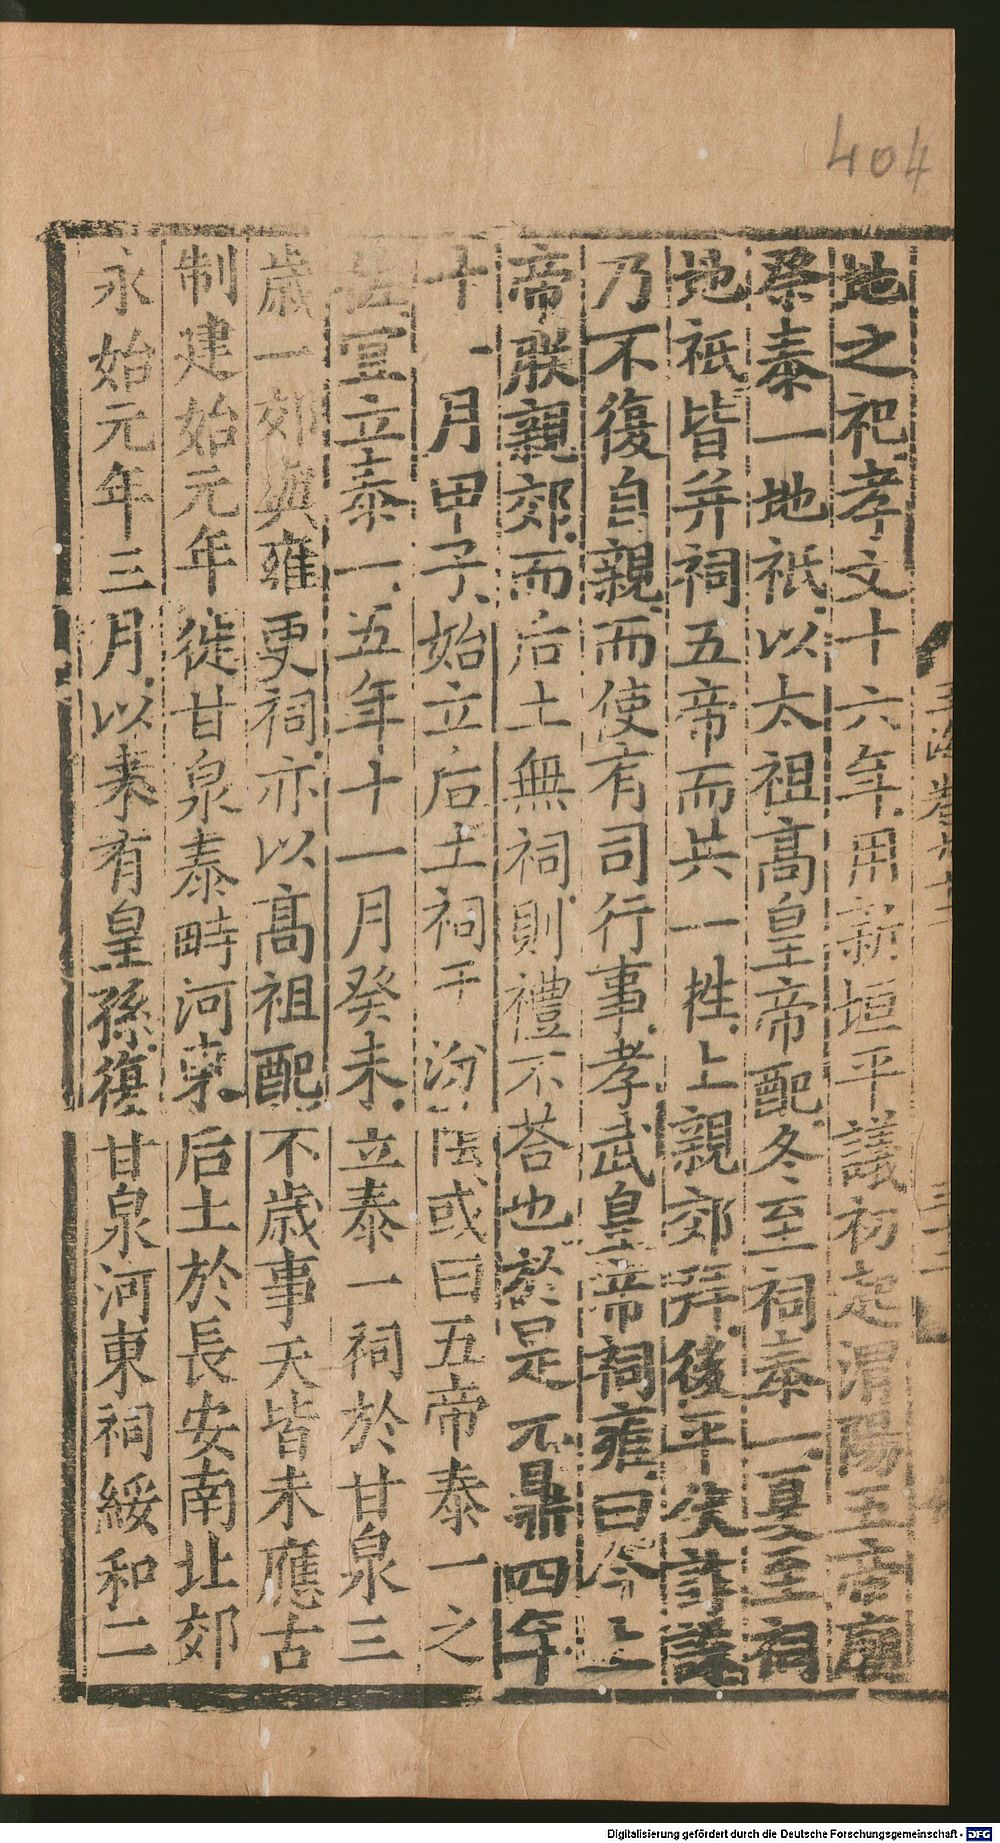 404
地之祀孝文十六年用新垣平議初起渭陽五帝廟
祭泰一地祇以太祖高皇帝配冬至祠泰一夏至祠
地祇皆并祠五帝而共一牲上親郊拜後平伏誅
乃不復自親而使有司行事孝武皇帝祠雍曰今上
帝朕親郊而后土無祠則禮不荅也於是元鼎四年
十一月甲子始立后土祠于汾陰或曰五帝泰一之
佐宜立泰一五年十一月癸未立泰一祠於甘泉三
歲一郊與雍更祠亦以髙祖配不歲事天皆未應古
制建始元年徙甘泉泰畤河東后土於長安南北郊
永始元年三月以未有皇孫復甘泉河東祠綏和二
Digitalisierung gefördert durch die Deutsche Forschungsgemeinschaft - DFG